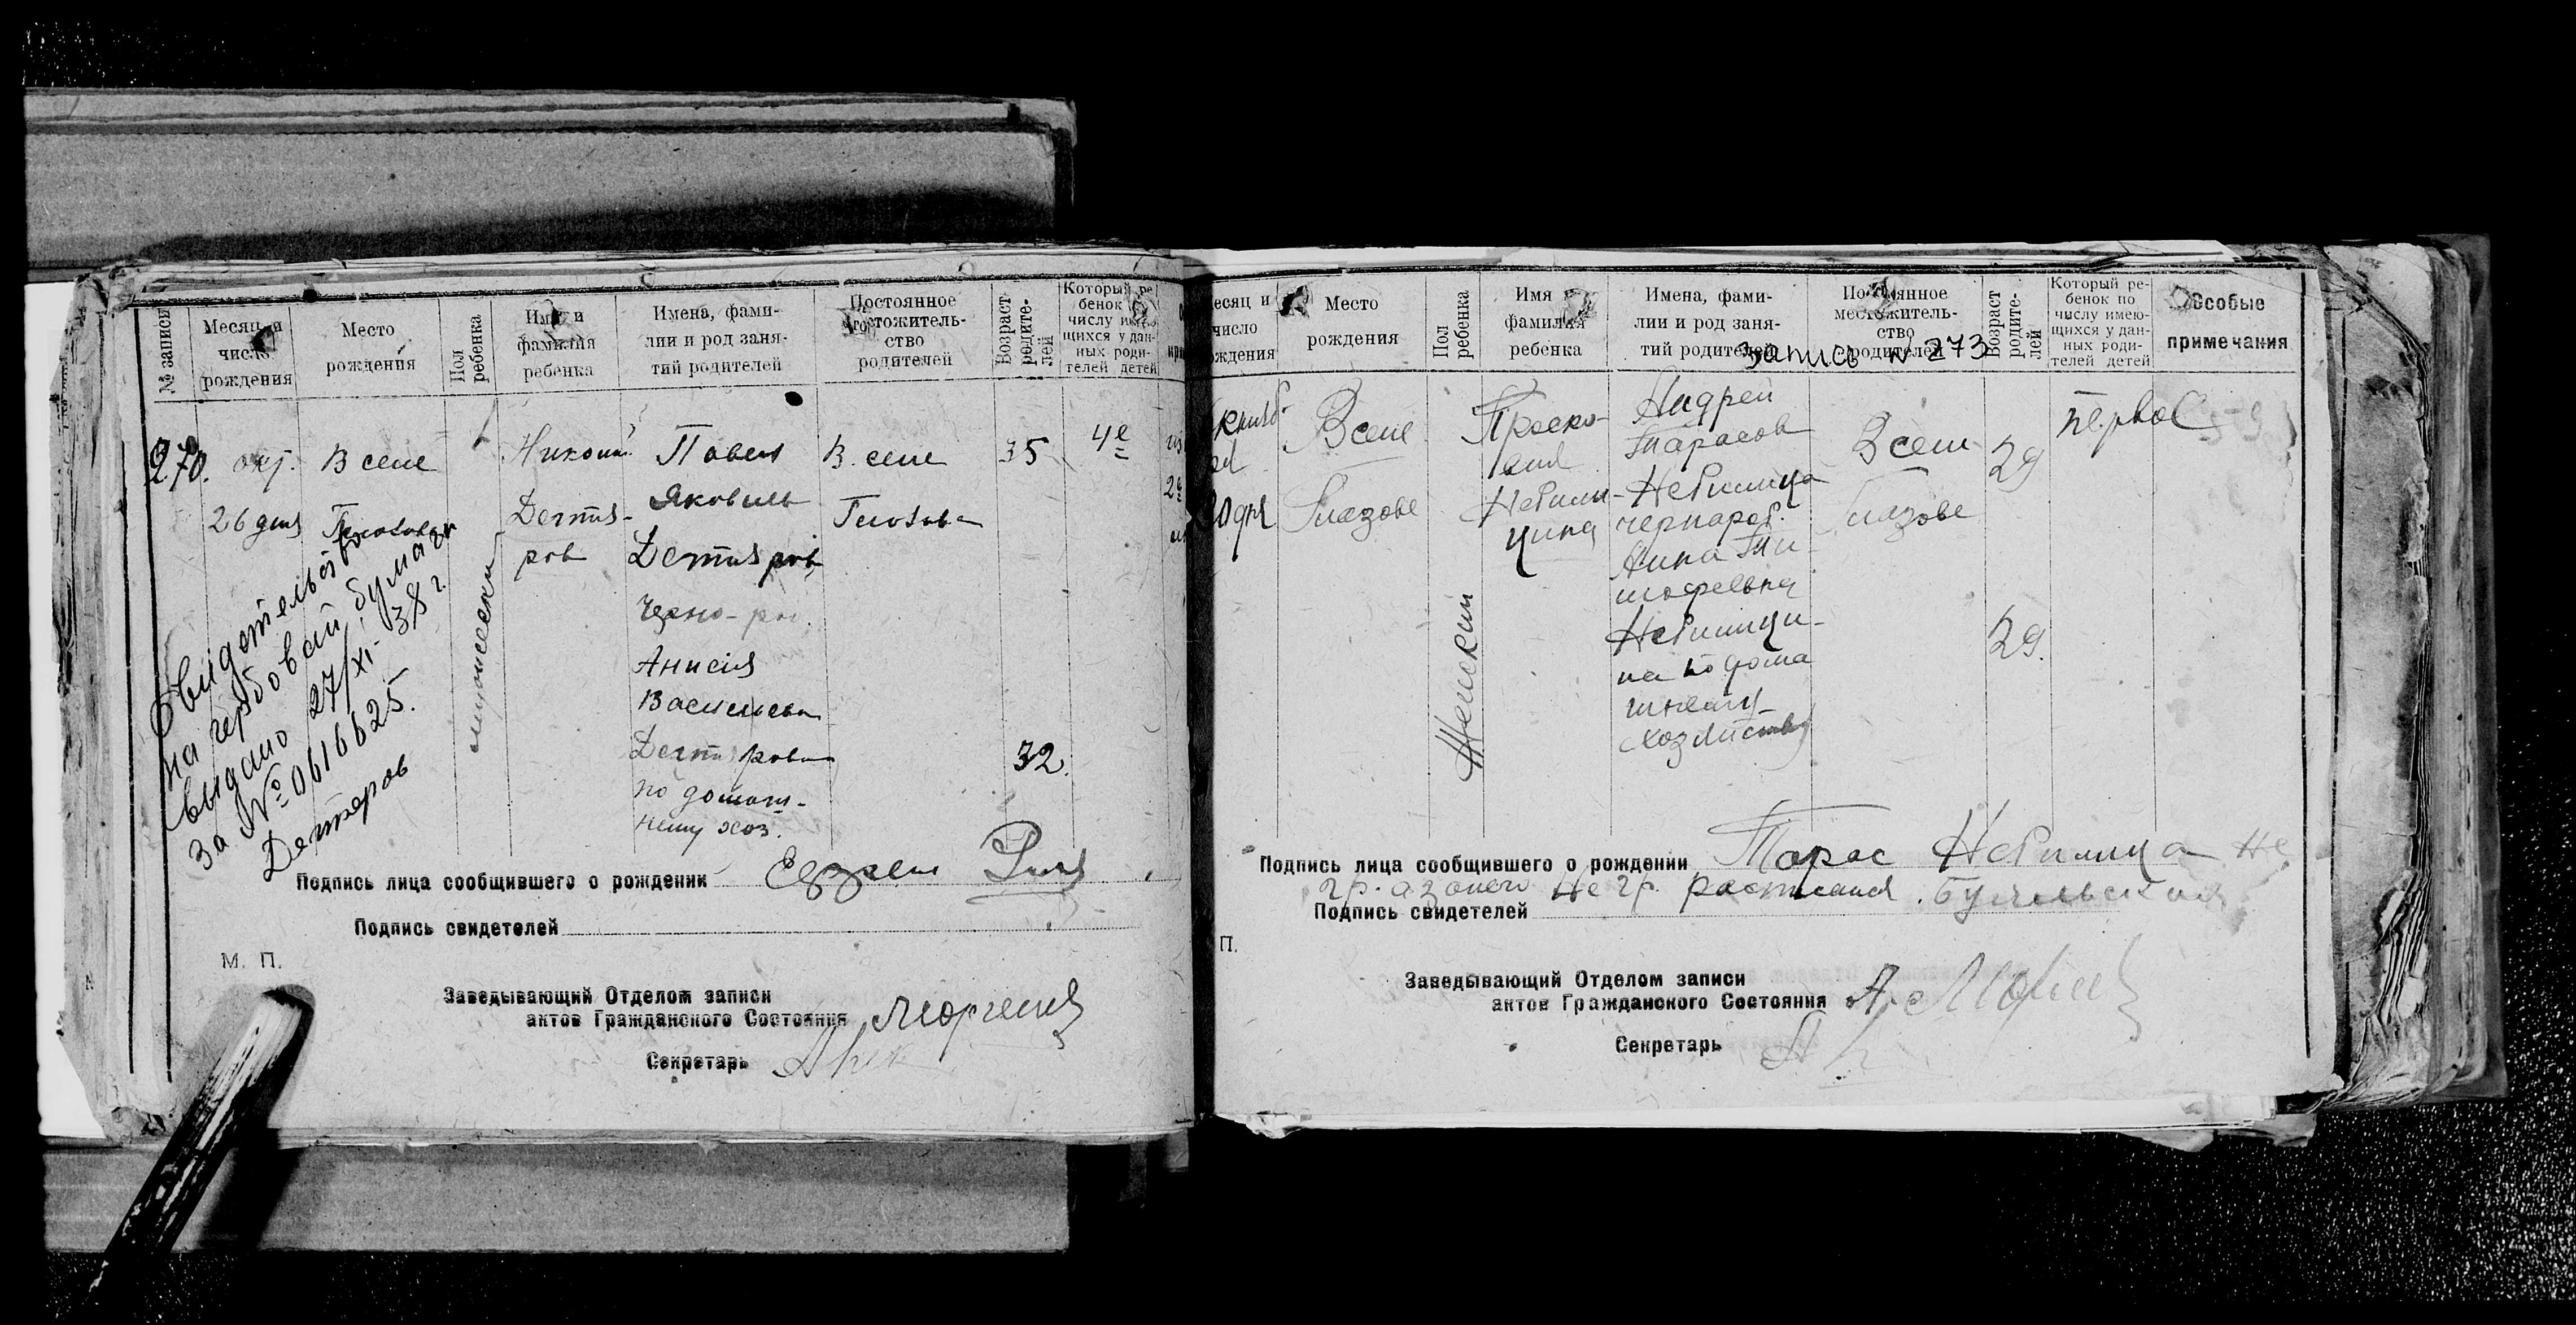 № записи
Месяц и
число
рождения
Место
рождения
Пол
ребенка
Имя и
фамилия
ребенка
Имена, фами-
лии и род заня-
тий родителей
Постоянное
местожитель-
ство
родителей
Возраст
родите-
лей
Который ре-
бенок по
числу имею-
щихся у дан-
ных роди-
телей детей
270.
окт.
26 дня
В селе
мужеский
Николай
Дегтя-
ров
Павел
Яковлев
Дегтяров
Черно-раб.
Анисия
Васильева
Дегтярова
по домаш-
нему хоз.
В. селе
35
32.
4е
Свидетельство
на гербовой бумаге
выдано 27/XI-38 г.
За № 0616625.
Дегтеров
Подпись лица сообщившего о рождении
Подпись свидетелей
М. П.
Заведывающий Отделом записи
актов Гражданского Состояния
Секретарь
есяц и
число
ождения
Место
рождения
Пол
ребенка
Имя и
фамилия
ребенка
Имена, фами-
лии и род заня-
тий родителей
Постоянное
местожитель-
ство
родителей
запись № 273
Возраст
родите-
лей
Который ре-
бенок по
числу имею-
щихся у дан-
ных роди-
телей детей
Особые
примечания
В селе
Глазове
Женский
Проско-
вия
Небыли-
цина
Андрей
Тарасов
Небылица
чернораб.
Анна Ти-
мофеевна
Небылици-
на по дома
шнему
хозяйству
В селе
Глазове
29
29.
первое
Подпись лица сообщившего о рождении Тарас Небылица не
гр. а за него не гр. расписался
Подпись свидетелей
П.
Заведывающий Отделом записи
актов Гражданского Состояния
Секретарь